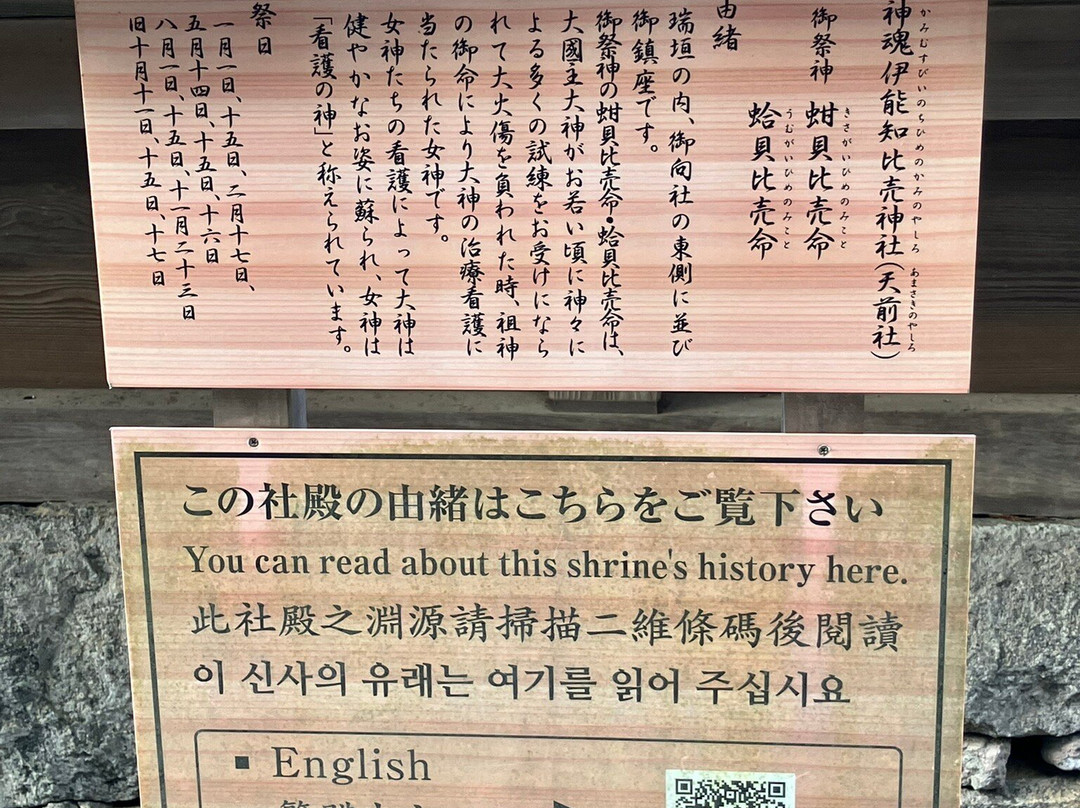 神魂伊能知比売神社(天前社)
かみむすびいのちひめのかみのやしろ
あまさきのやしろ
御祭神 蚶貝比売命
きさがいひめのみこと
蛤貝比売命
うむがいひめのみこと
由緒
瑞垣の内、御向社の東側に並び
御鎮座です。
御祭神の蚶貝比売命・蛤貝比売命は、
大國主大神がお若い頃に神々に
よる多くの試練をお受けになら
れて大火傷を負われた時、祖神
の御命により大神の治療看護に
当たられた女神です。
女神たちの看護によって大神は
健やかなお姿に蘇られ、女神は
「看護の神」と称えられています。
祭日
一月一日、十五日、二月十七日、
五月十四日、十五日、十六日
八月一日、十五日、十一月二十三日
旧十月十一日、十五日、十七日
この社殿の由緒はこちらをご覧下さい
You can read about this shrine's history here.
此社殿之淵源請掃描二維條碼後閱讀
이 신사의 유래는 여기를 읽어 주십시요
■ English